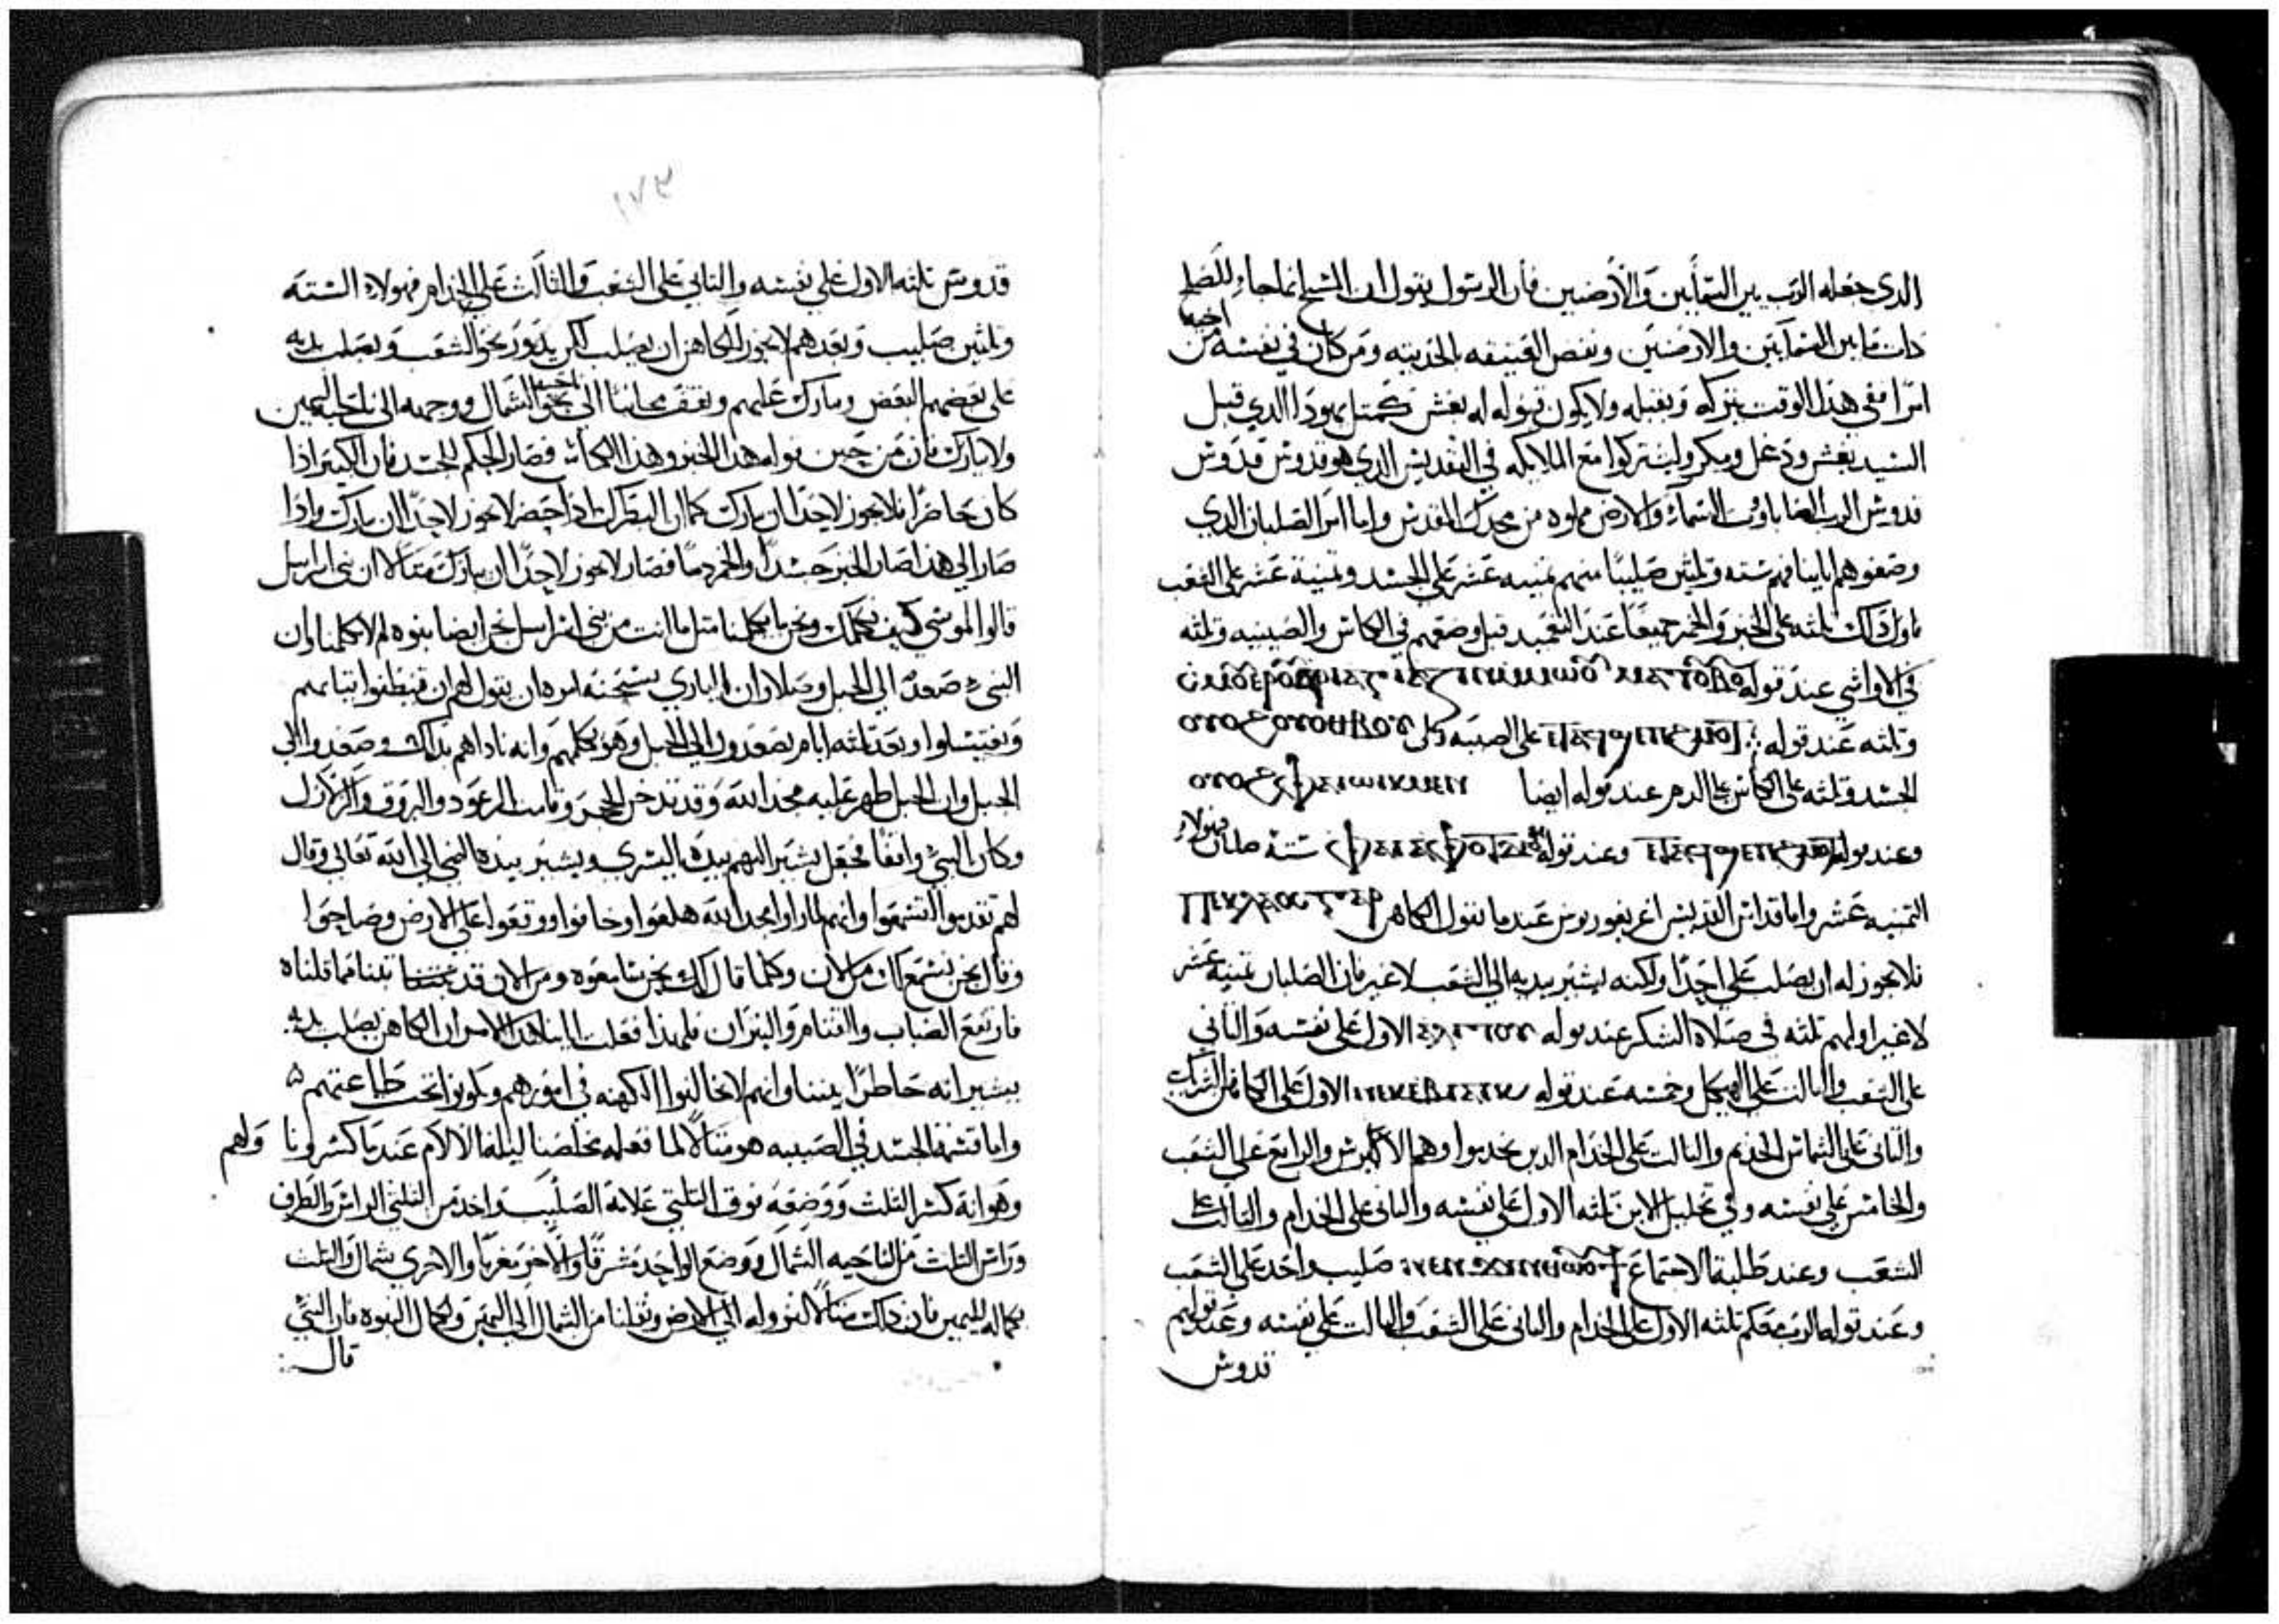 الدي جعله الرب بين السمايين والأرضيين فأن الرسول يقول ان المسيح انما جا للصلح
دات مابين السمايين والارضيين ونقض العتيقه بالحديثه ومن كان في نفسه من اخيه
اثرا ففي هذا الوقت يتركه ويقبله ولا يكون قبوله له بغش كمتل يهودا الدي قبل
السيد بغش ودغل ومكر وليشتركوا مع الملايكه في التقديس الدي هو قدوش قدوش
قدوش الرب الصاباووت السماء والارض مملوه من مجدك المقدس واما امر الصلبان الدي
وضعوهم ابايتنا فهم سته وتلثين صليبا منهم تمنيه عشر علي الجسد وتمنية عشر علي الشعب
فاول داك تلته علي الخبز والخمر جميعا عند التعميد قبل وضعهم في الكاس والصينيه وتلثه
في الاواشي عند قوله
وتلثه عند قوله علي الصينيه وكل
الجسد وتلثه علي الكأس علي الدم عند قوله ايضا
وعند قوله وعند قوله سته صلبان فهولاء
التمنيه عشر واما قداس القديس اغريغوريوس عندما يقول الكاهن
فلا يجوز له ان يصلب علي احدا ولكنه يشير بيديه الي الشعب لا غير فان الصلبان تمنية عشر
لا غير اولهم تلثه في صلاة الشكر عند قوله الاول علي نفسه والتاني
علي الشعب والتالت علي الهيكل وخمسه عند قوله الاول علي الكاهن الشريك
والتاني علي الشماس الخديم والتالت علي الخدام الدين يخدموا وهم الاكليرس والرابع علي الشعب
والخامس علي نفسه وفي تحليل الابن تلثه الاول علي نفسه والتاني علي الخدام والتالت علي
الشعب وعند طلبة الاجتماع صليب واحد علي الشعب
وعند قوله الرب معكم تلثه الاول علي الخدام والتاني علي الشعب والتالت علي نفسه وعند قولهم
قدوش
١٧٣
قدوس تلثه الاول علي نفسه والتاني علي الشعب والثالث علي الخدام فهولاء الستة
وتلثين صليب وبعدهم لا يجوز للكاهن ان يصلب لكن يدور نحو الشعب ويصلب يديه
علي بعضهم البعض ويبارك عليهم ويقف مجانبا الي ناحية الشمال ووجهه الي ناحية اليمين
ولا يبارك فان من حين قوله هدا الخبز وهذا الكاس فصار الحكم للجسد فان الكبير اذا
كان حاضرا فلا يجوز لاحدا ان يبارك كما ان البطرك اذا حضر لا يجوز لاحدا ان يبارك واذا
صار الي هذا صار الخبز جسدا والخمر دما فصار لا يجوز لاحدا ان يبارك مثالا ان بني اسراييل
قالوا لموسي كيف يكلمك ونحن ما يكلمنا مثل ما انت من بني اسراييل نحن ايضا بنوه لم لا يكلمنا وان
النبي صعد الي الجبل وصلا وان الباري سبحنه امره ان يقول لهم ان ينظفوا تيابهم
ويغتسلوا وبعد تلثه ايام يصعدون الي الجبل وهو يكلمهم وانه ناداهم بذلك وصعدوا الي
الجبل وان الجبل ظهر عليه مجد الله وقد تدخن الجبل وقامت الرعود والبروق والزلازل
وكان النبي واقفا فجعل يشير اليهم بيده اليسري ويشير بيده اليمني الي الله تعالي وقال
لهم تقدموا لتسمعوا وانهم لما راوا مجد الله هلعوا وخافوا ووقعوا علي الارض وصاحوا
وقال نحن نسمع لك من الان وكلما قال لك نحن سامعوه ومن الان قد تبنا مما قلناه
فارتفع الضباب والقتام والنيران فلهدا فعلت ابايتنا هدا الامر ان الكاهن يصلب يديه
يشير انه حاطرا بيننا وانهم لا يخالفوا الكهنه في امورهم ويكونوا تحت طاعتهم
واما قسمة الجسد في الصينيه هو مثالا لما فعله مخلصنا ليلة الالام عندما كسر ونا ولهم
وهو انه كسر الثلث ووضعه فوق الثلتي علامة الصليب واخد من الثلثي الراس والطرف
وراس الثلث من الناحيه الشمال ووضع الواحد مشرقا والاخر مغربا والاخري شمال والثلث
بكماله لليمين فان ذلك مثالا لنزوله الي الارض ونقلنا من الشمال الي اليمين ولكمال النبوه فان النبي
قال